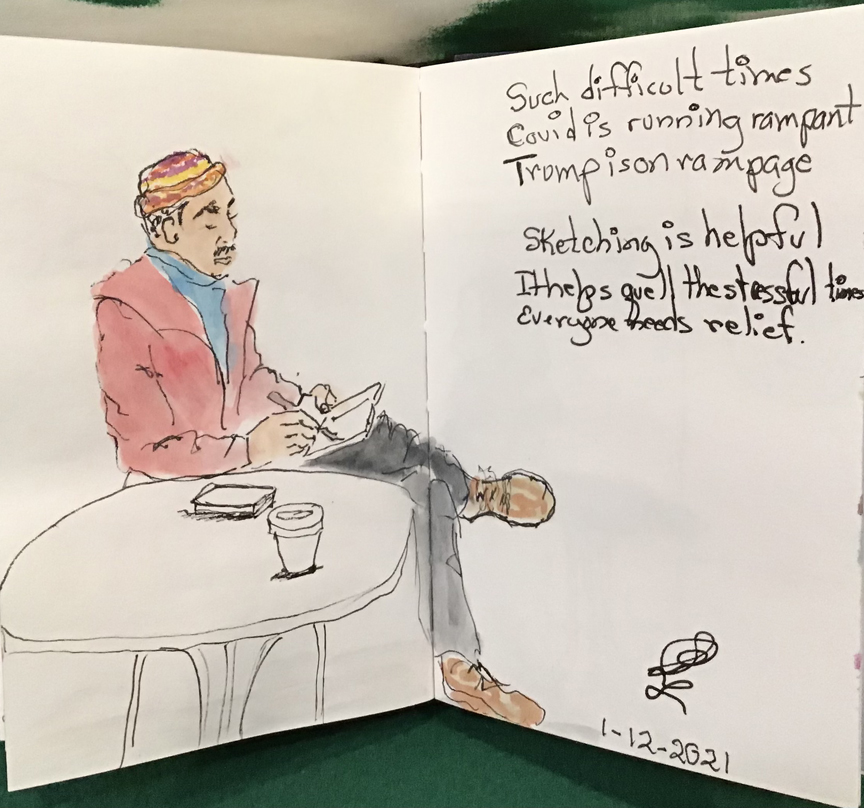 Such difficult times
Covid is running rampant
Trump is on rampage
Sketching is helpful
It helps quell the stressful times
Everyone needs relief.
1-12-2021